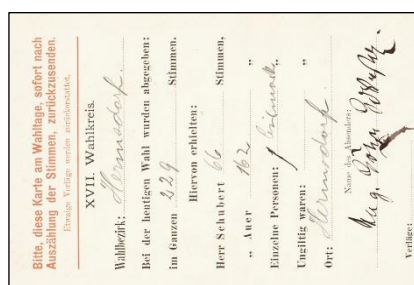 Bitte, diese Karte am Wahltage, sofort nach
Auszählung der Stimmen, zurückzusenden.
Etwaige Verläge werden zurückerstattet.
XVII. Wahlkreis.
Wahlbezirk: Hermsdorf.
Bei der heutigen Wahl wurden abgegeben:
im Ganzen 229 Stimmen.
Hiervon erhielten:
Herr Schubert 66 Stimmen,
„ Auer 162 „
Einzelne Personen: 1 „
Ungiltig waren: „
Ort: Hermsdorf
Name des Absenders:
Verläge: